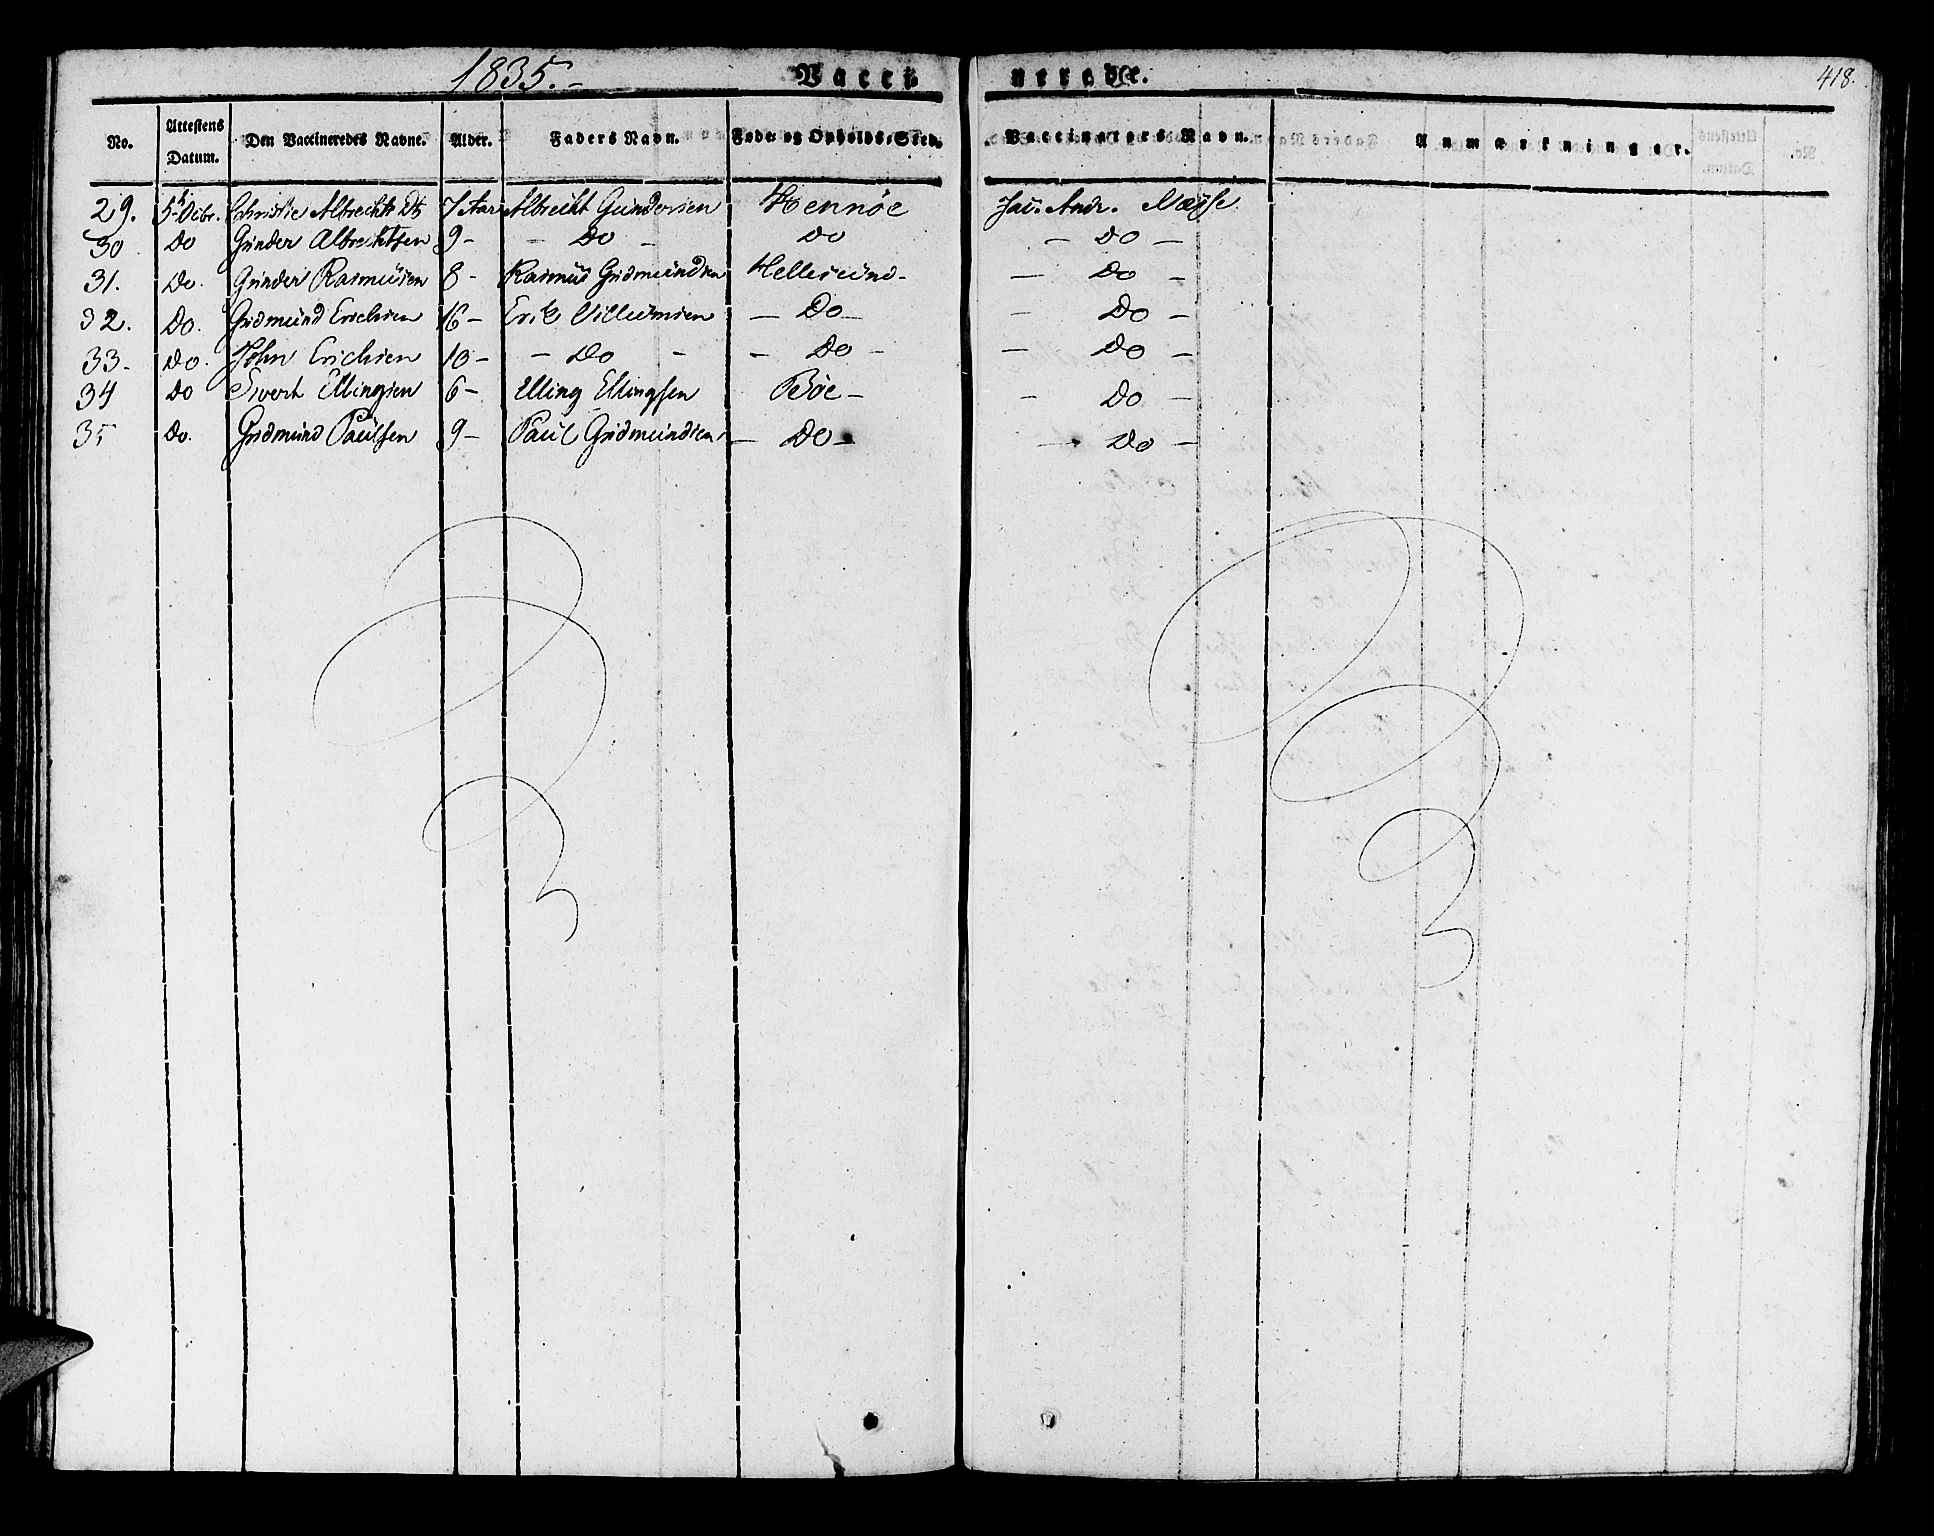 1835.- Vacci nerede. 418.
No. Attestens Datum. Den Vaccineredes Navne. Alder. Faders Navn. Føde- og Opholds-Sted. Vaccinators Navn. Anmærkninger.
29. 5t Decbr. Christie Albrechts Dt 7 Aar Albrecht Gunderssen Hennöe Jac. Andr.
30 Do Gunder Albrechtsen 9- - Do - Do - Do -
31. Do. Gunder Rasmussen 8- Rasmus Gudmundsen Hellesund- - Do -
32. Do. Gudmund Erichsen 16- Erik Villumsen - Do- - Do -
33- Do. John Erichsen 10- - Do - - Do - - Do -
34 Do Sivert Ellingsen 6- Elling Ellingsen Böe- - Do -
35 Do. Gudmund Paulsen 9- Paul Gudmundsen - Do - - Do -